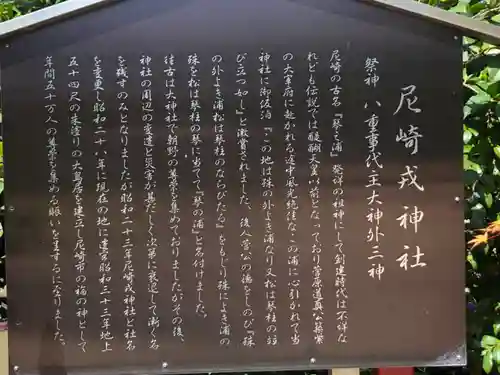 尼崎戎神社
祭神 八重事代主大神外三神
尼崎の古名『琴之浦』発祥の祖神にして創建時代は不詳な
れども伝説では醍醐天皇以前となっており菅原道真公筑紫
の大宰府に赴かれる途中風光絶佳なこの浦に心引かれて当
神社に御依泊『この地は殊の外よき浦なり又松は琴柱の竝
び立つ如し』と激賞されました。後人菅公の徳をしのび『殊
の外よき浦松は琴柱のならびたる』をもじり殊によき浦の
殊を松は琴柱の琴に当てて『琴の浦』と名付けました。
往古は大神社で朝野の尊崇を集めておりましたがその後、
神社の周辺の変遷と災害が甚だしく次第に衰退して漸く名
を残すのみとなりましたが昭和二十三年尼崎戎神社と社名
を変更し昭和二十八年に現在の地に遷宮昭和三十三年地上
五十四尺の朱塗りの大鳥居を建立し尼崎市の福の神として
年間五十万人の尊崇を集める賑いを呈するになりました。